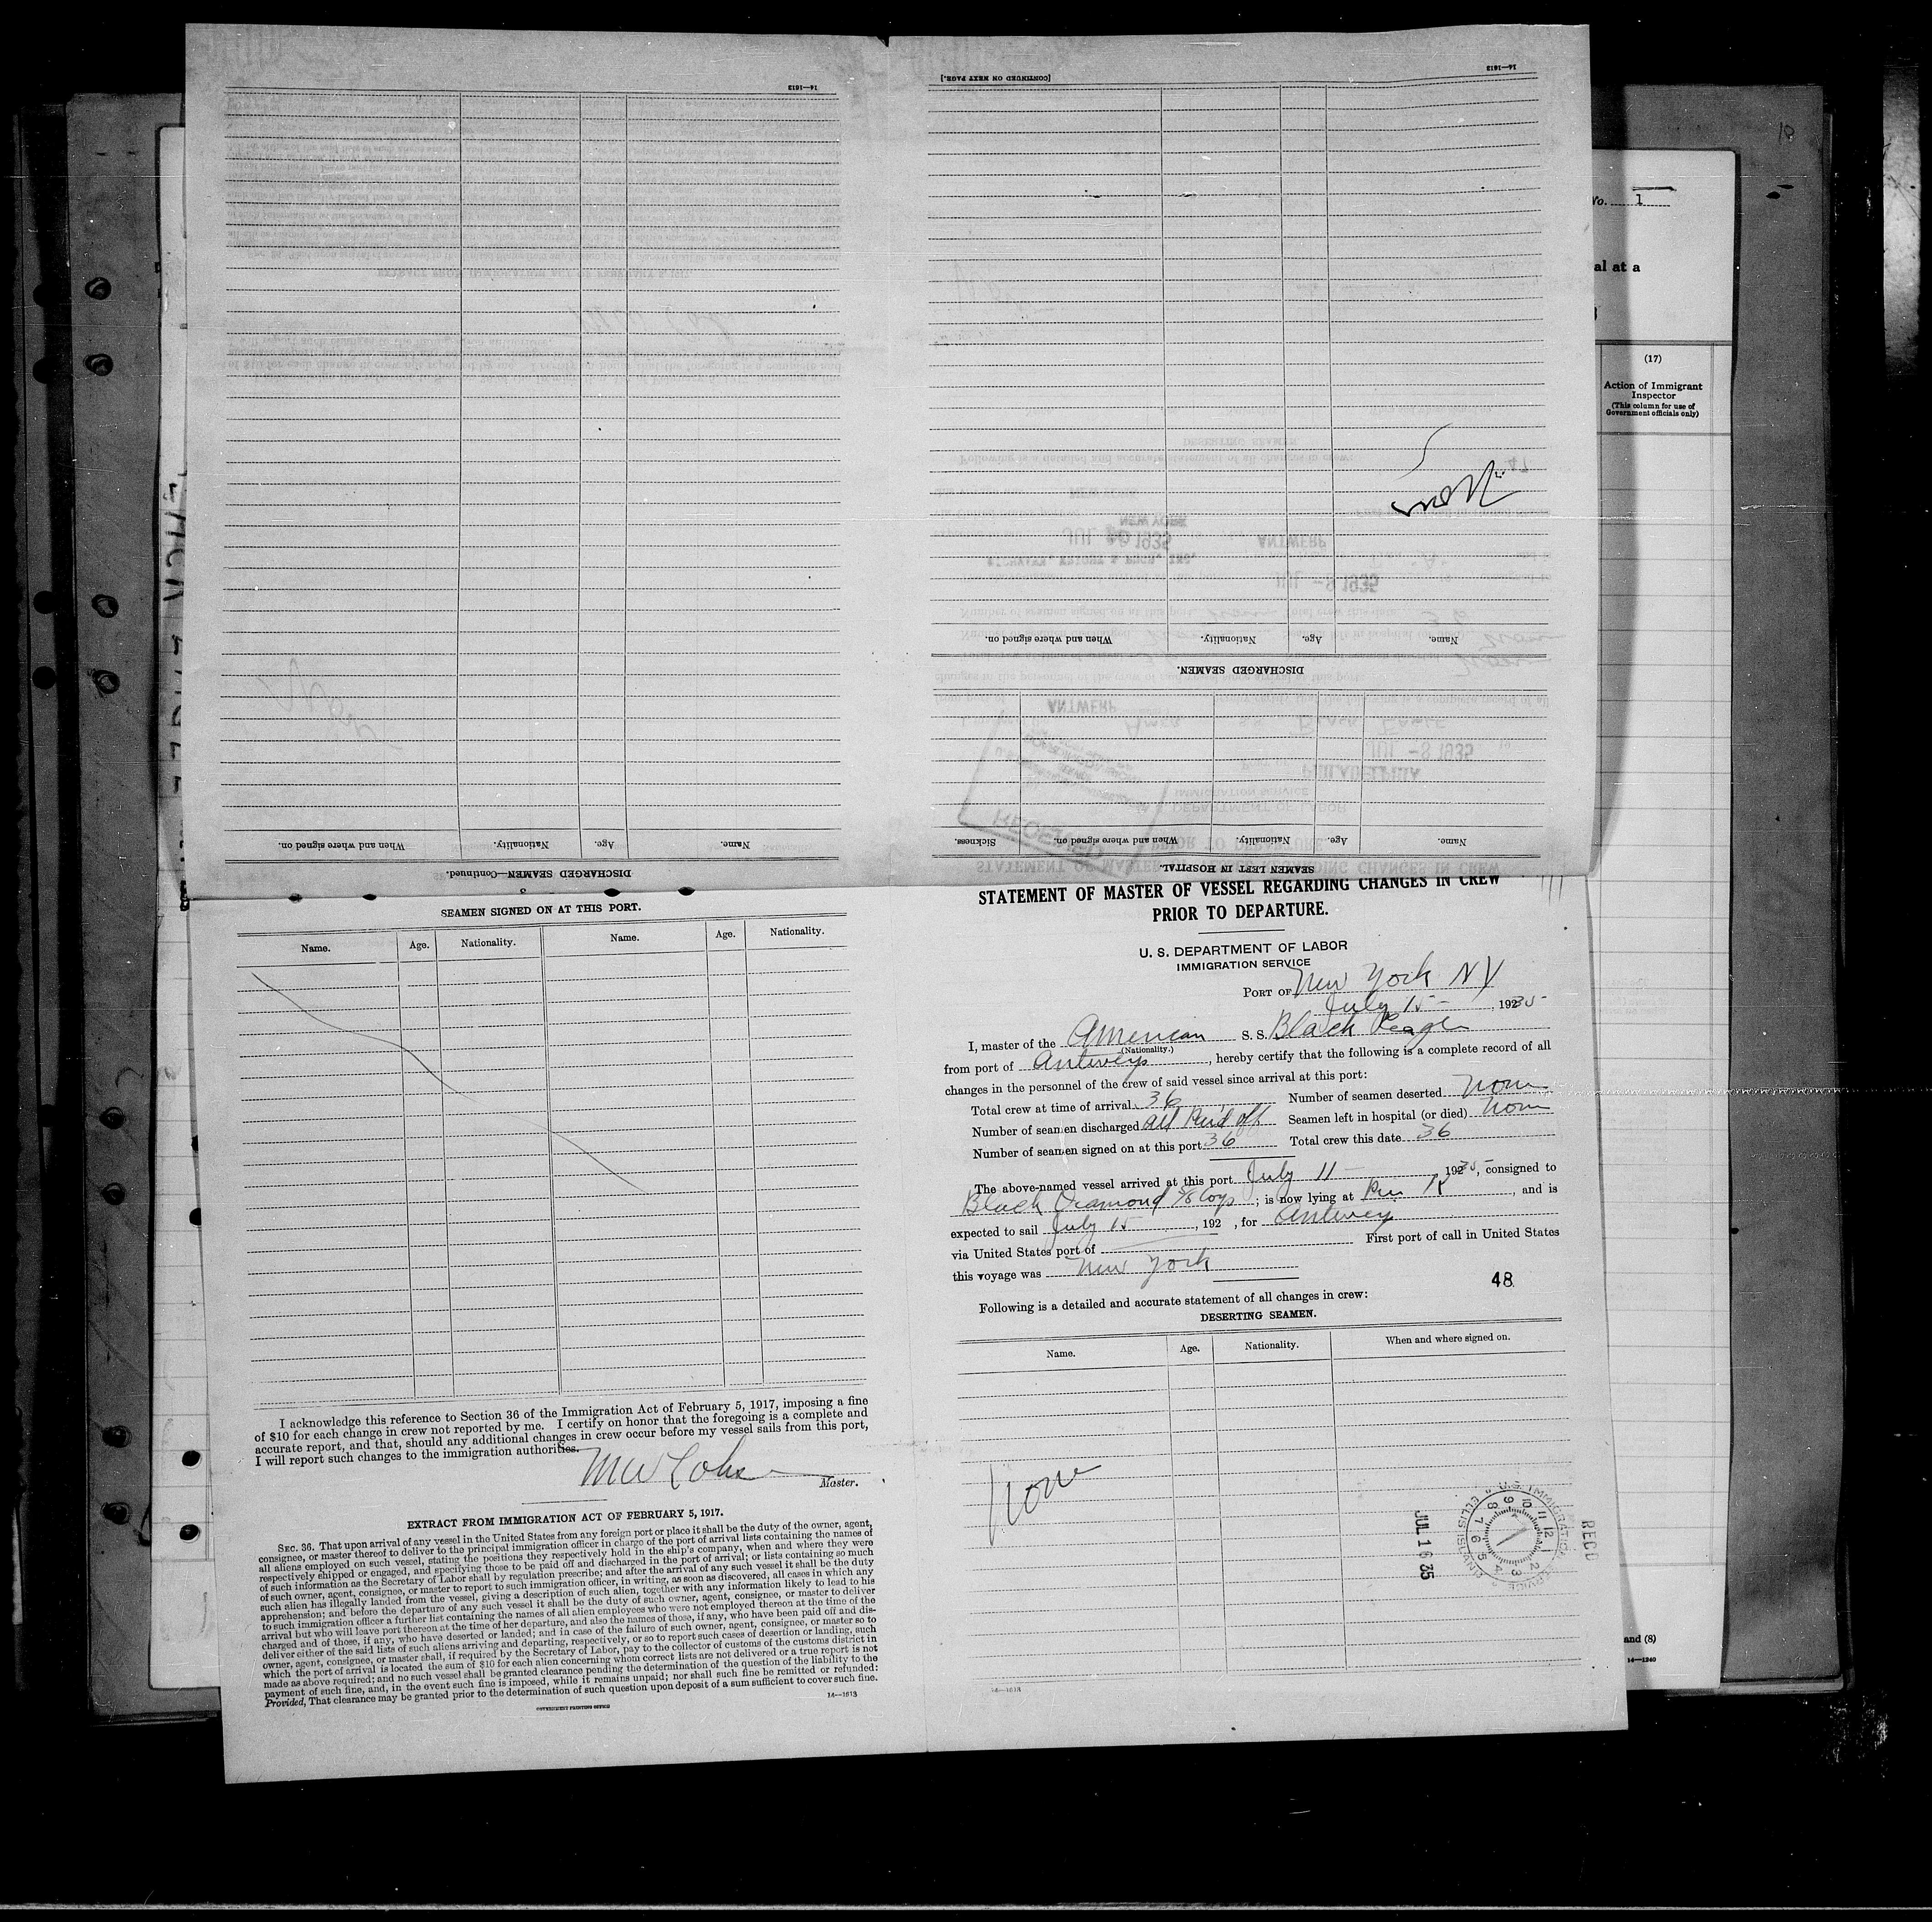 [CONTINUED ON NEXT PAGE.]
14—1613
14—1613
10
No. 1
al at a
(17)
Action of Immigrant
Inspector
(This column for use of
Government officials only)
None
Name. Age. Nationality. When and where signed on.
DISCHARGED SEAMEN.
Name. Age. Nationality. When and where signed on. Sickness.
SEAMEN LEFT IN HOSPITAL.
Name. Age. Nationality. When and where signed on.
DISCHARGED SEAMEN—Continued.
3
SEAMEN SIGNED ON AT THIS PORT.
Name. Age. Nationality. Name. Age. Nationality.
I acknowledge this reference to Section 36 of the Immigration Act of February 5, 1917, imposing a fine
of $10 for each change in crew not reported by me. I certify on honor that the foregoing is a complete and
accurate report, and that, should any additional changes in crew occur before my vessel sails from this port,
I will report such changes to the immigration authorities.
Master.
EXTRACT FROM IMMIGRATION ACT OF FEBRUARY 5, 1917.
SEC. 36. That upon arrival of any vessel in the United States from any foreign port or place it shall be the duty of the owner, agent,
consignee, or master thereof to deliver to the principal immigration officer in charge of the port of arrival lists containing the names of
all aliens employed on such vessel, stating the positions they respectively hold in the ship's company, when and where they were
respectively shipped or engaged, and specifying those to be paid off and discharged in the port of arrival; or lists containing so much
of such information as the Secretary of Labor shall by regulation prescribe; and after the arrival of any such vessel it shall be the duty
of such owner, agent, consignee, or master to report to such immigration officer, in writing, as soon as discovered, all cases in which any
such alien has illegally landed from the vessel, giving a description of such alien, together with any information likely to lead to his
apprehension; and before the departure of any such vessel it shall be the duty of such owner, agent, consignee, or master to deliver
to such immigration officer a further list containing the names of all alien employees who were not employed thereon at the time of the
arrival but who will leave port thereon at the time of her departure, and also the names of those, if any, who have been paid off and dis-
charged and of those, if any, who have deserted or landed; and in case of the failure of such owner, agent, consignee, or master so to
deliver either of the said lists of such aliens arriving and departing, respectively, or so to report such cases of desertion or landing, such
owner, agent, consignee, or master shall, if required by the Secretary of Labor, pay to the collector of customs of the customs district in
which the port of arrival is located the sum of $10 for each alien concerning whom correct lists are not delivered or a true report is not
made as above required; and no such vessel shall be granted clearance pending the determination of the question of the liability to the
payment of such fine, and, in the event such fine is imposed, while it remains unpaid; nor shall such fine be remitted or refunded:
Provided, That clearance may be granted prior to the determination of such question upon deposit of a sum sufficient to cover such fine.
GOVERNMENT PRINTING OFFICE
14—1613
STATEMENT OF MASTER OF VESSEL REGARDING CHANGES IN CREW
PRIOR TO DEPARTURE.
U. S. DEPARTMENT OF LABOR
IMMIGRATION SERVICE
PORT OF New York NY
July 15, 1935
I, master of the American S. S. Black Eagle
(Nationality.)
from port of Antwerp, hereby certify that the following is a complete record of all
changes in the personnel of the crew of said vessel since arrival at this port:
Total crew at time of arrival 36 Number of seamen deserted None
Number of seamen discharged all Paid off Seamen left in hospital (or died) None
Number of seamen signed on at this port 36 Total crew this date 36
The above-named vessel arrived at this port July 11, 1935, consigned to
Black Diamond S/S Corp; is now lying at Pier K, and is
expected to sail July 15, 192 , for Antwerp
via United States port of First port of call in United States
this voyage was New York
48
Following is a detailed and accurate statement of all changes in crew:
DESERTING SEAMEN.
Name. Age. Nationality. When and where signed on.
None
JUL 16 35
U.S. IMMIGRATION SERVICE ELLIS ISLAND
RECD
14—1613
and (8)
14—1240